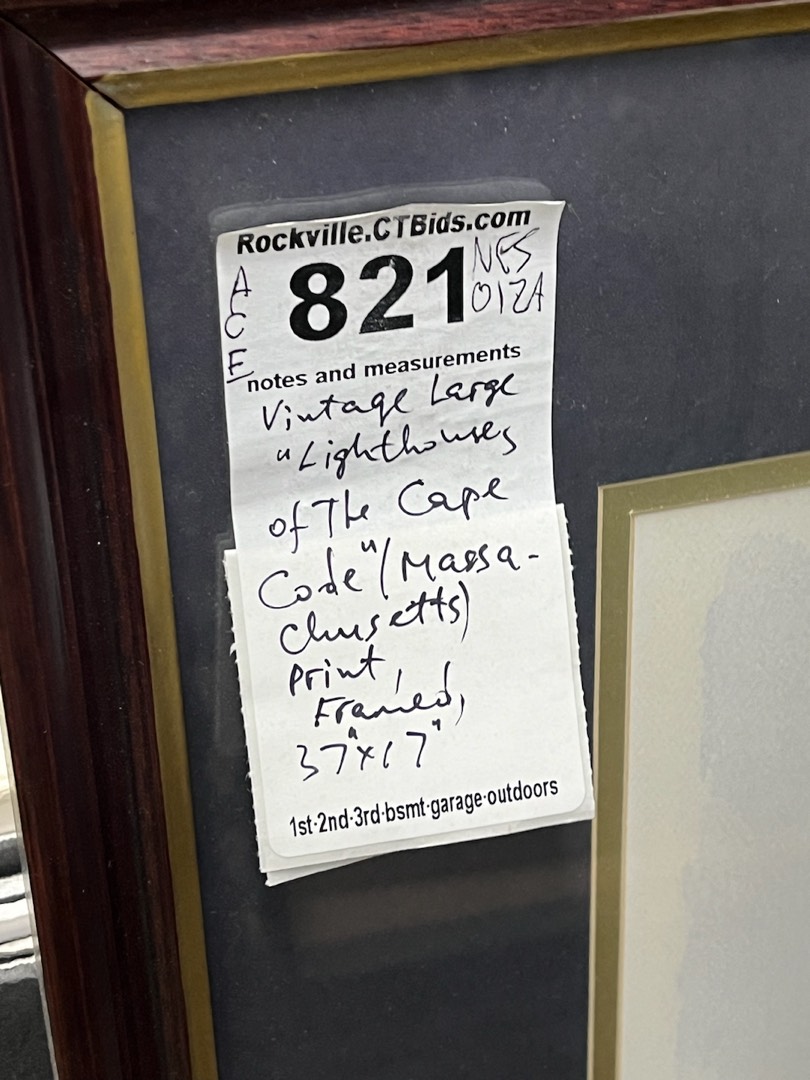 Rockville.CTBids.com
A
C
E
821
NFS
012A
notes and measurements
Vintage Large
"Lighthouses
of The Cape
Code" (Massa-
chusetts)
print,
Framed,
37"x17"
1st·2nd·3rd·bsmt·garage·outdoors